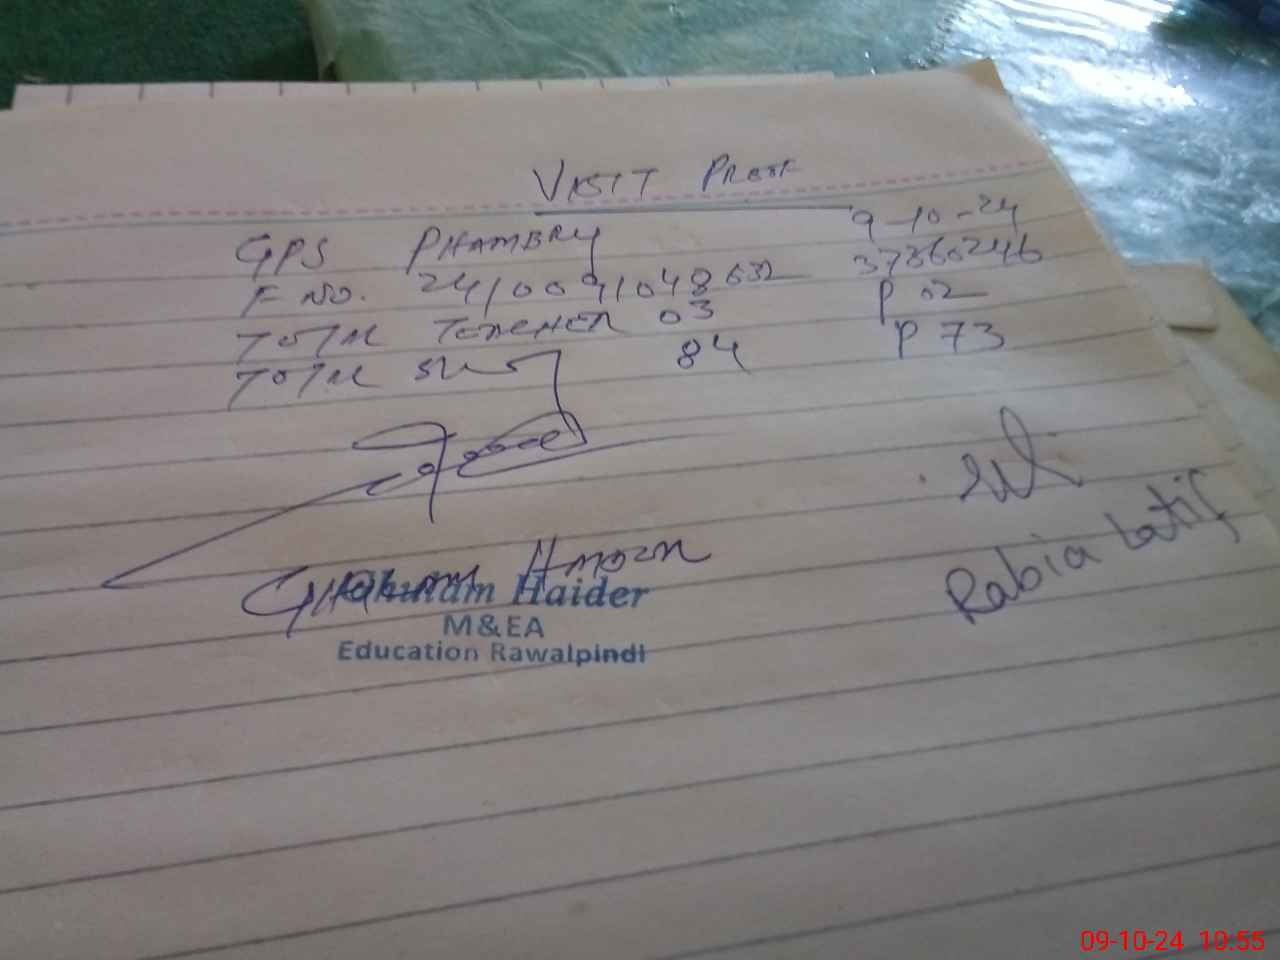 VISIT PROOF
GPS PHAMBRY 9-10-24
F NO. 2410091048632 37360246
TOTAL TEACHER 03 P 02
TOTAL 84 P 73
GHULAM HAIDER
Ghulam Haider
M&EA
Education Rawalpindi
Rabia Latif
09-10-24 10:55